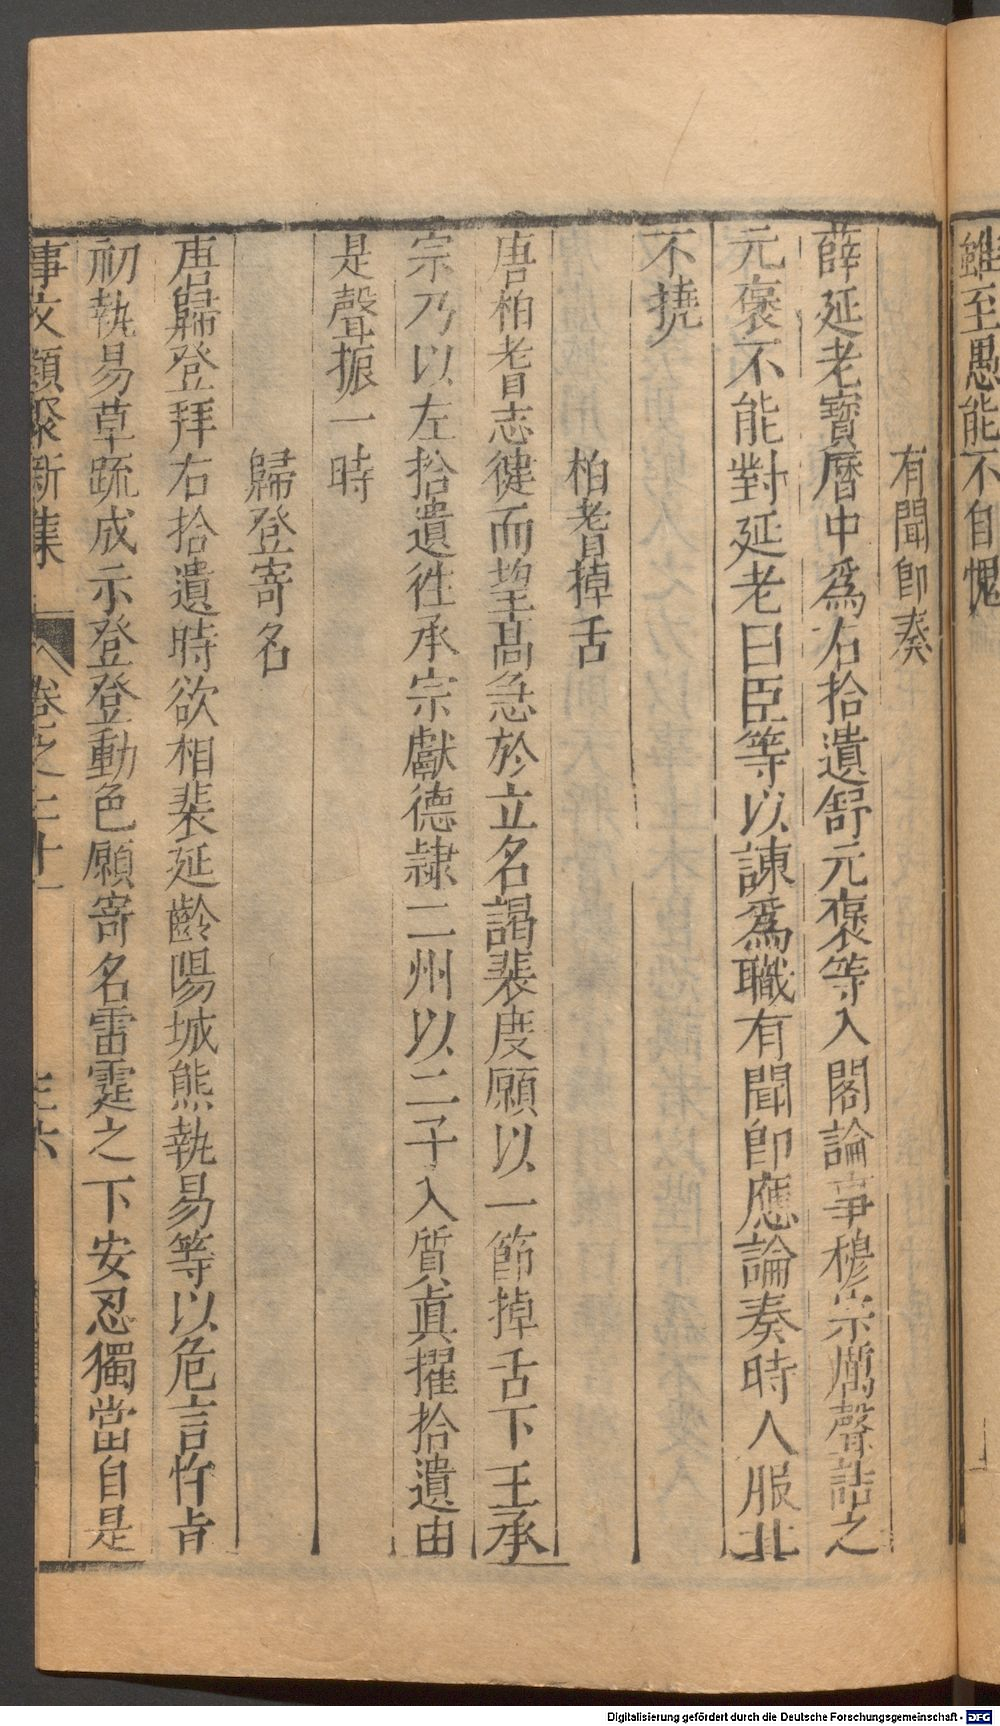 雖至愚能不自愧
有聞即奏
薛延老寶曆中爲右拾遺舒元褒等入閣論事穆宗厲聲詰之
元褒不能對延老曰臣等以諫爲職有聞即應論奏時人服北
不撓
柏耆掉舌
唐柏耆志健而望高急於立名謁裴度願以一節掉舌下王承
宗乃以左拾遺徃承宗獻德隷二州以二子入質真擢拾遺由
是聲振一時
歸登寄名
唐歸登拜右拾遺時欲相裴延齡陽城熊執易等以危言忤㫖
初執易草䟽成示登登動色願寄名雷霆之下安忍獨當自是
事文類聚新集 卷之二十一 三六
Digitalisierung gefördert durch die Deutsche Forschungsgemeinschaft - DFG